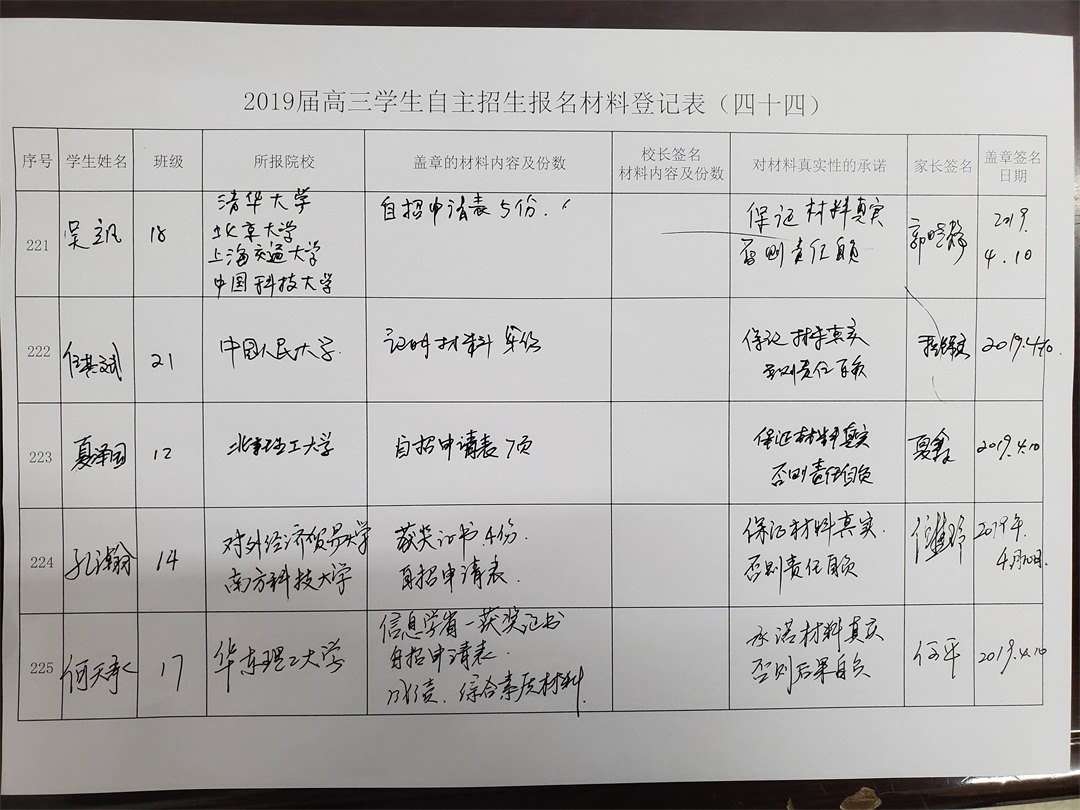 2019届高三学生自主招生报名材料登记表（四十四）
序号 学生姓名 班级 所报院校 盖章的材料内容及份数 校长签名 材料内容及份数 对材料真实性的承诺 家长签名 盖章签名 日期
221 18
清华大学
北京大学
上海交通大学
中国科技大学
自招申请表5份.
保证材料真实
否则责任自负
郭晓静
2019.
4.10
222 21 中国人民大学.
证明材料
保证材料真实
否则责任自负
2019.4.10.
223 12 北京理工大学
自招申请表7页
保证材料真实
否则责任自负
夏鑫
2019.4.10
224 孔瀚 14
对外经济贸易大学
南方科技大学
获奖证书4份.
自招申请表.
保证材料真实.
否则责任自负
2019年.
4月10日.
225 何天承 17 华东理工大学
信息学省一获奖证书
自招申请表.
成绩.综合素质材料
承诺材料真实
否则后果自负
何平
2019.4.10